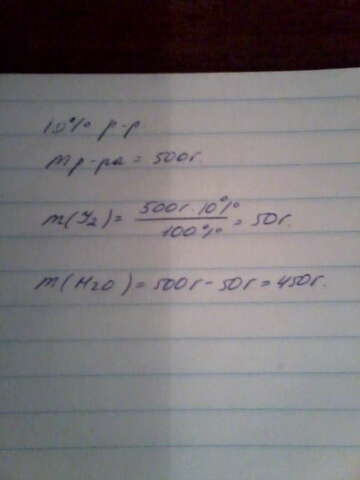 10% р-р
mр-ра = 500г.
m(J2) = 500г·10% / 100% = 50г.
m(H2O) = 500г - 50г = 450г.